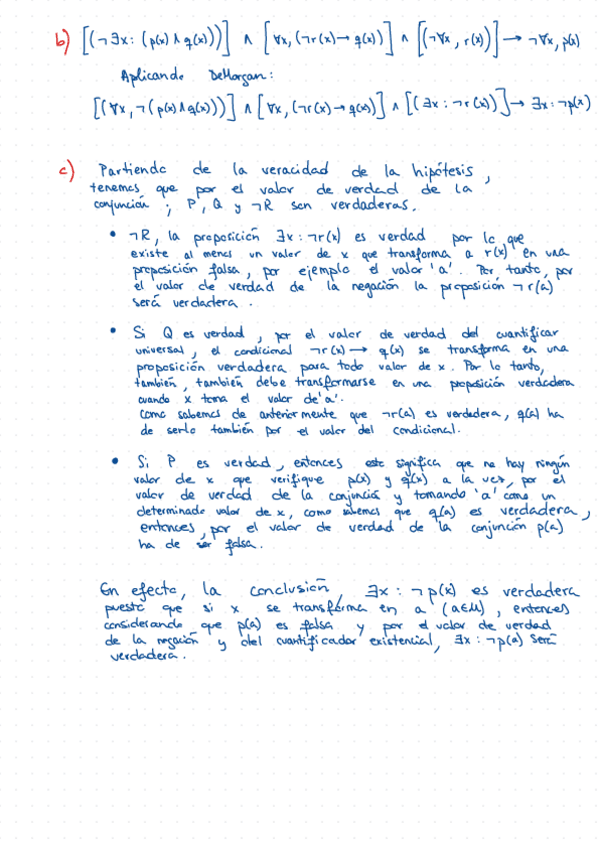 b) [(¬∃x: (p(x) ∧ q(x)))] ∧ [∀x, (¬r(x) → q(x))] ∧ [(¬∀x, r(x))] → ¬∀x, p(x)
Aplicando DeMorgan:
[(∀x, ¬(p(x) ∧ q(x)))] ∧ [∀x, (¬r(x) → q(x))] ∧ [(∃x: ¬r(x))] → ∃x: ¬p(x)
c) Partiendo de la veracidad de la hipótesis,
tenemos que por el valor de verdad de la
conjunción; P, Q y ¬R son verdaderas.
• ¬R, la proposición ∃x: ¬r(x) es verdad por lo que
existe al menos un valor de x que transforma a r(x) en una
proposición falsa, por ejemplo el valor 'a'. Por tanto, por
el valor de verdad de la negación la proposición ¬r(a)
será verdadera.
• Si Q es verdad, por el valor de verdad del cuantificar
universal, el condicional ¬r(x) → q(x) se transforma en una
proposición verdadera para todo valor de x. Por lo tanto,
también, también debe transformarse en una proposición verdadera
cuando x toma el valor de 'a'.
Como sabemos de anteriormente que ¬r(a) es verdadera, q(a) ha
de serlo también por el valor del condicional.
• Si P es verdad, entonces este significa que no hay ningún
valor de x que verifique p(x) y q(x) a la vez, por el
valor de verdad de la conjunción y tomando 'a' como un
determinado valor de x, como sabemos que q(a) es verdadera,
entonces, por el valor de verdad de la conjunción p(a)
ha de ser falsa.
En efecto, la conclusión, ∃x: ¬p(x) es verdadera
puesto que si x se transforma en a (a∈U), entonces
considerando que p(a) es falsa y por el valor de verdad
de la negación y del cuantificador existencial, ∃x: ¬p(a) será
verdadera.